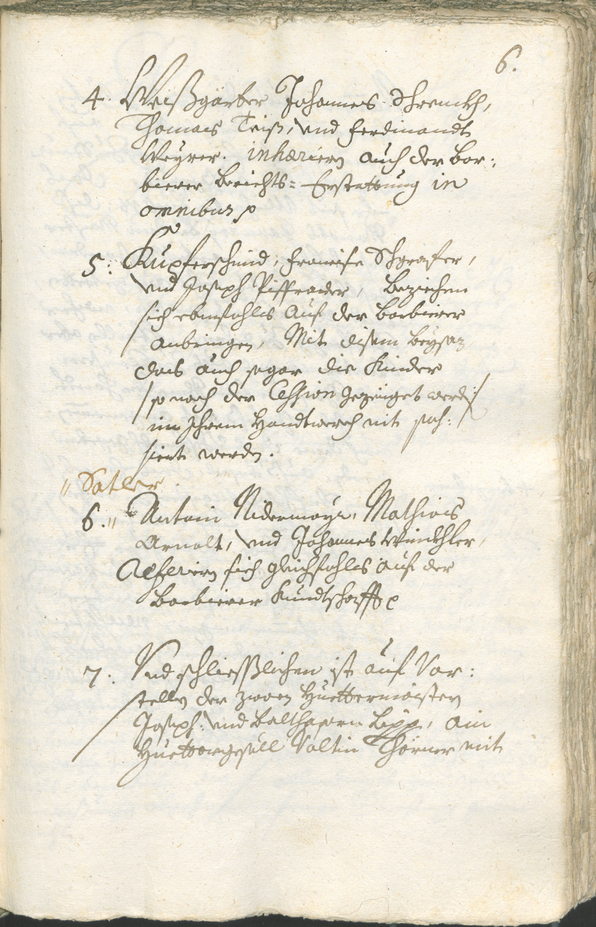 6.
4. Weißgärber Johannes
Thomas Teiß, und Ferdinandt
Weyrer. inhæriern auch der Bar:
bierer Berichts= Erstattung in
omnibus p
5. Kupferschmid, Francisc
und Joseph Piffrader, Beziehen
sich ebenfahls auf der Barbierer
Anbringen, Mit disem Beysaz
das auch sogar die Kinder
/so nach der Cession gezeiget werd/
in Ihrem Handtwerch nit pas:
siert werden.
" Satler
6. " Antoni Nidermayr, Mathias
Arnolt, und Johannes Winkhler,
Referiern sich gleichfahls auf der
Barbierer Kundtschafft p
7. Und schliesslichen ist auf Vor:
stellen der zween Huettermaister
Joseph, und Balthasarn Lipp, ain
Huettergesell Valtin Thörner mit